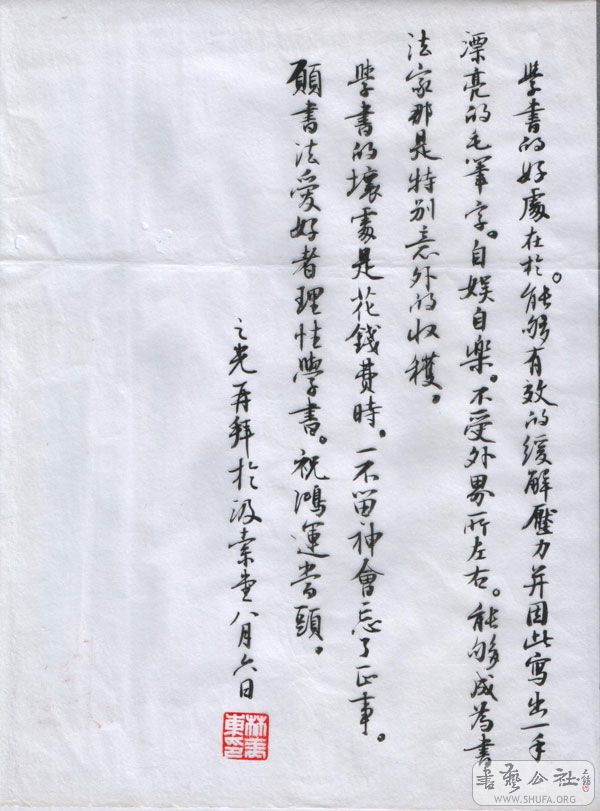 學書的好處在於。能够有效的緩解壓力并因此寫出一手
漂亮的毛筆字。自娱自樂。不受外界所左右。能够成為書
法家那是特别意外的收穫。
學書的壞處是花錢費時。一不留神會忘了正事。
願書法愛好者理性學書。祝鴻運當頭。
之光再拜於汲素堂八月六日
書藝公社
WWW.SHUFA.ORG